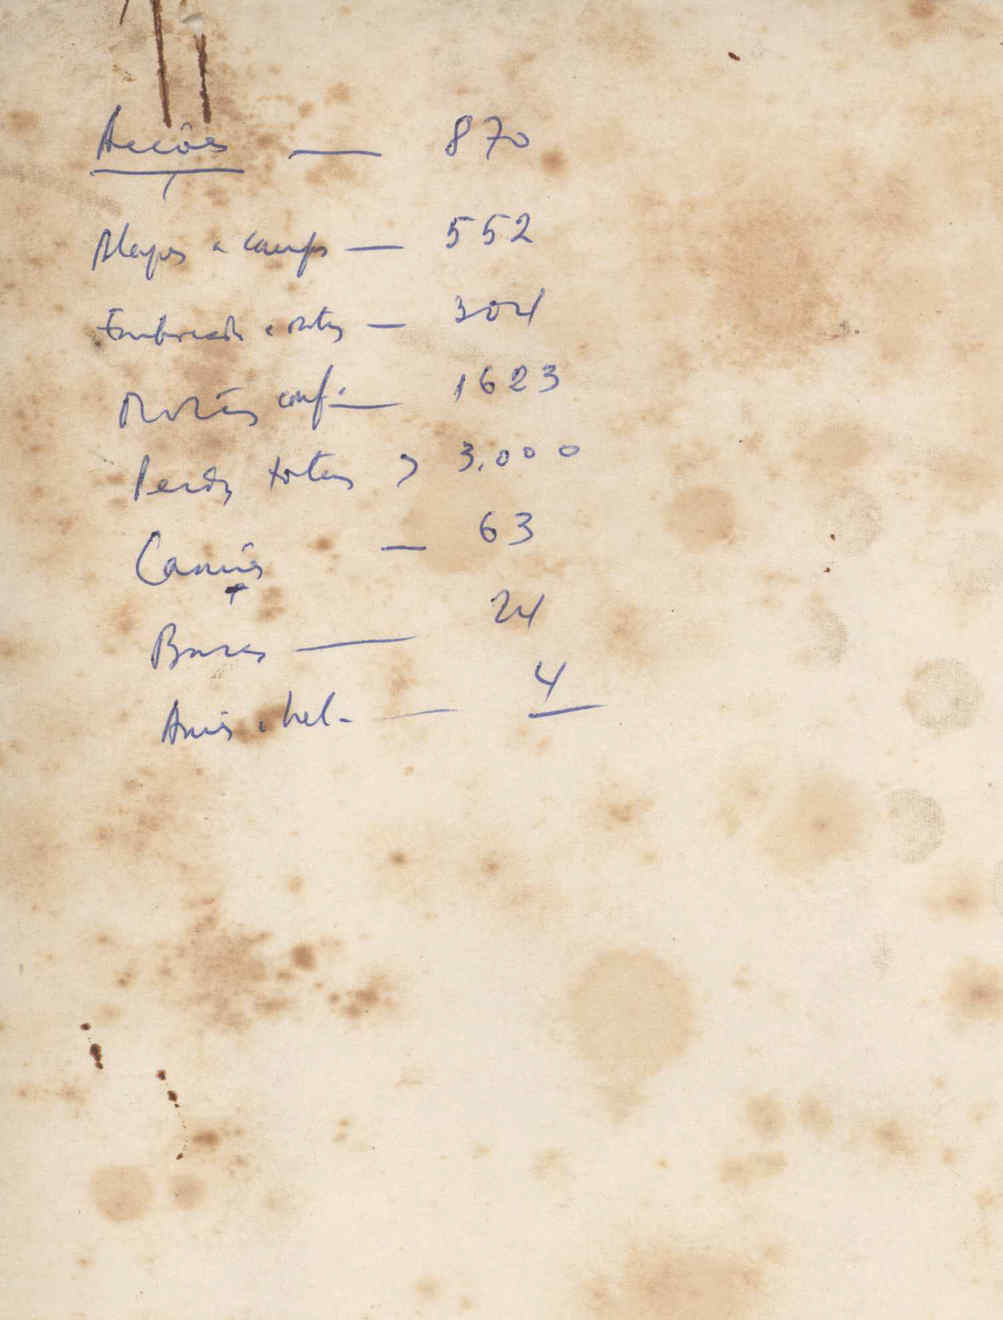 Acções — 870
Ataques a camps — 552
Emboscadas e outs — 304
Mortes conf. — 1623
Perdas totais > 3.000
Camiões — 63
Barcos — 24
Aviões e hel. — 4